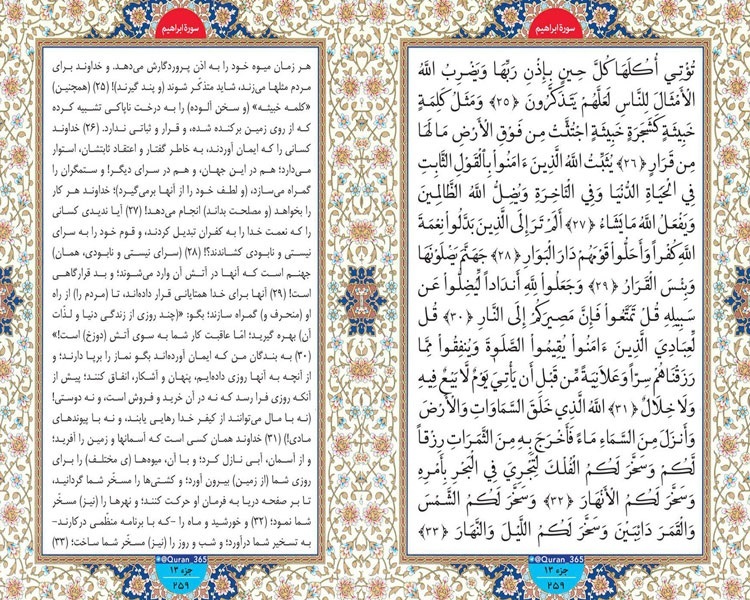 سورة ابراهیم
تُؤْتِي أُكُلَهَا كُلَّ حِينٍ بِإِذْنِ رَبِّهَا وَيَضْرِبُ اللَّهُ
الْأَمْثَالَ لِلنَّاسِ لَعَلَّهُمْ يَتَذَكَّرُونَ ﴿٢٥﴾ وَمَثَلُ كَلِمَةٍ
خَبِيثَةٍ كَشَجَرَةٍ خَبِيثَةٍ اجْتُثَّتْ مِن فَوْقِ الْأَرْضِ مَا لَهَا
مِن قَرَارٍ ﴿٢٦﴾ يُثَبِّتُ اللَّهُ الَّذِينَ ءَامَنُواْ بِالْقَوْلِ الثَّابِتِ
فِي الْحَيَاةِ الدُّنْيَا وَفِي الْآخِرَةِ وَيُضِلُّ اللَّهُ الظَّالِمِينَ
وَيَفْعَلُ اللَّهُ مَا يَشَاءُ ﴿٢٧﴾ أَلَمْ تَرَ إِلَى الَّذِينَ بَدَّلُواْ نِعْمَةَ
اللَّهِ كُفْراً وَأَحَلُّواْ قَوْمَهُمْ دَارَ الْبَوَارِ ﴿٢٨﴾ جَهَنَّمَ يَصْلَوْنَهَا
وَبِئْسَ الْقَرَارُ ﴿٢٩﴾ وَجَعَلُواْ لِلَّهِ أَندَاداً لِّيُضِلُّواْ عَن
سَبِيلِهِ قُلْ تَمَتَّعُواْ فَإِنَّ مَصِيرَكُمْ إِلَى النَّارِ ﴿٣٠﴾ قُل
لِّعِبَادِيَ الَّذِينَ ءَامَنُواْ يُقِيمُواْ الصَّلَوةَ وَيُنفِقُواْ مِمَّا
رَزَقْنَاهُمْ سِرّاً وَعَلَانِيَةً مِّن قَبْلِ أَن يَأْتِيَ يَوْمٌ لَّا بَيْعٌ فِيهِ
وَلَا خِلَالٌ ﴿٣١﴾ اللَّهُ الَّذِي خَلَقَ السَّمَاوَاتِ وَالْأَرْضَ
وَأَنزَلَ مِنَ السَّمَاءِ مَاءً فَأَخْرَجَ بِهِ مِنَ الثَّمَرَاتِ رِزْقاً
لَّكُمْ وَسَخَّرَ لَكُمُ الْفُلْكَ لِتَجْرِيَ فِي الْبَحْرِ بِأَمْرِهِ
وَسَخَّرَ لَكُمُ الْأَنْهَارَ ﴿٣٢﴾ وَسَخَّرَ لَكُمُ الشَّمْسَ
وَالْقَمَرَ دَائِبَيْنِ وَسَخَّرَ لَكُمُ اللَّيْلَ وَالنَّهَارَ ﴿٣٣﴾
@Quran_365
جزء ۱۳
۲۵۹
سورة ابراهیم
هر زمان میوه خود را به اذن پروردگارش می‌دهد. و خداوند برای
مردم مثلها می‌زند، شاید متذکّر شوند (و پند گیرند)! (۲۵) (همچنین)
«کلمه خبیثه» (و سخن آلوده) را به درخت ناپاکی تشبیه کرده
که از روی زمین برکنده شده، و قرار و ثباتی ندارد. (۲۶) خداوند
کسانی را که ایمان آوردند، به خاطر گفتار و اعتقاد ثابتشان، استوار
می‌دارد؛ هم در این جهان، و هم در سرای دیگر! و ستمگران را
گمراه می‌سازد، (و لطف خود را از آنها برمی‌گیرد)؛ خداوند هر کار
را بخواهد (و مصلحت بداند) انجام می‌دهد! (۲۷) آیا ندیدی کسانی
را که نعمت خدا را به کفران تبدیل کردند، و قوم خود را به سرای
نیستی و نابودی کشاندند؟! (۲۸) (سرای نیستی و نابودی، همان)
جهنم است که آنها در آتش آن وارد می‌شوند؛ و بد قرارگاهی
است! (۲۹) آنها برای خدا همتایانی قرار داده‌اند، تا (مردم را) از راه
او (منحرف و) گمراه سازند؛ بگو: «(چند روزی از زندگی دنیا و لذّات
آن) بهره گیرید؛ امّا عاقبت کار شما به سوی آتش (دوزخ) است!»
(۳۰) به بندگان من که ایمان آورده‌اند بگو نماز را برپا دارند؛ و
از آنچه به آنها روزی داده‌ایم، پنهان و آشکار، انفاق کنند؛ پیش از
آنکه روزی فرا رسد که نه در آن خرید و فروش است، و نه دوستی!
(نه با مال می‌توانند از کیفر خدا رهایی یابند، و نه با پیوندهای
مادی!) (۳۱) خداوند همان کسی است که آسمانها و زمین را آفرید؛
و از آسمان، آبی نازل کرد؛ و با آن، میوه‌ها (ی مختلف) را برای
روزی شما (از زمین) بیرون آورد؛ و کشتی‌ها را مسخّر شما گردانید،
تا بر صفحه دریا به فرمان او حرکت کنند؛ و نهرها را (نیز) مسخّر
شما نمود؛ (۳۲) و خورشید و ماه را -که با برنامه منظّمی درکارند-
به تسخیر شما درآورد؛ و شب و روز را (نیز) مسخّر شما ساخت؛ (۳۳)
@Quran_365
جزء ۱۳
۲۵۹